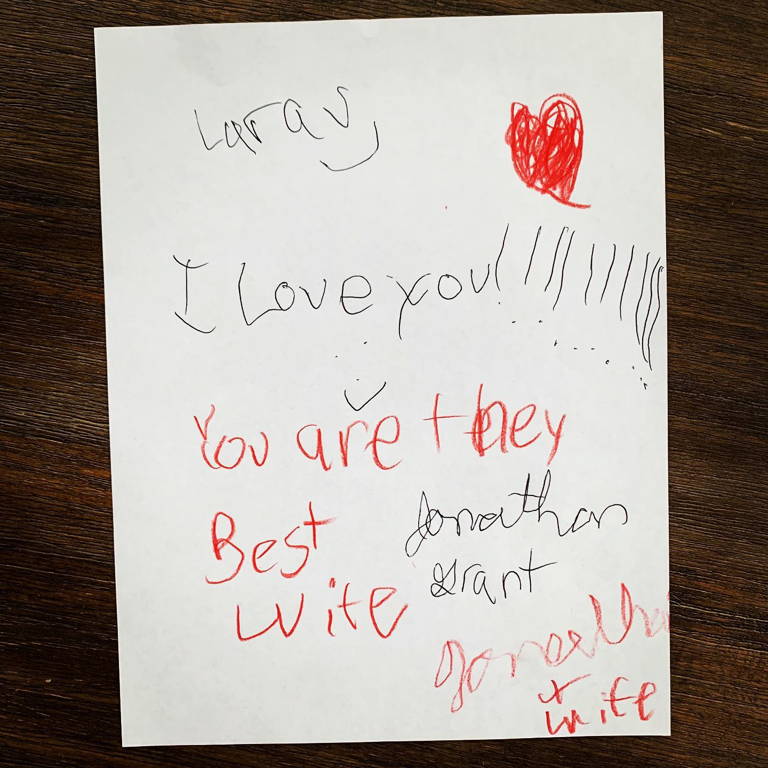 Lara
I Love you!!!!!!!!!!!
You are they
Best
Jonathan
Grant
wife
Jonatha
+ wife